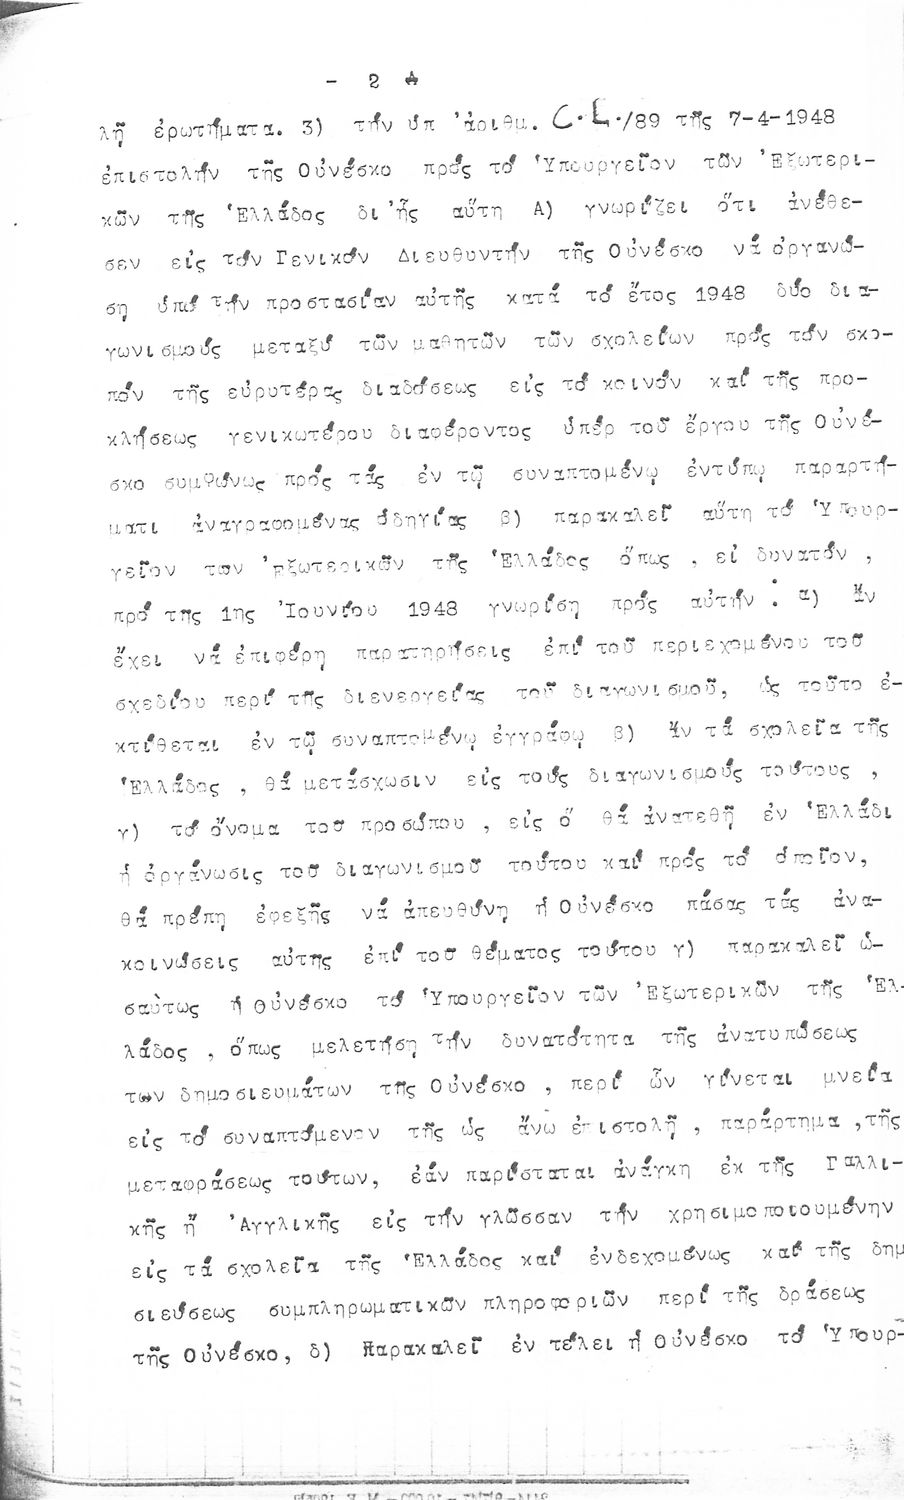 - 2 -
λῇ ἐρωτήματα. 3) τήν ὑπ 'ἀριθμ. C.L./89 τῆς 7-4-1948
ἐπιστολήν τῆς Οὐνέσκο πρός τό Ὑπουργεῖον τῶν Ἐξωτερι-
κῶν τῆς Ἑλλάδος δι'ἧς αὕτη Α) γνωρίζει ὅτι ἀνέθε-
σεν εἰς τόν Γενικόν Διευθυντήν τῆς Οὐνέσκο νά ὀργανώ-
σῃ ὑπό τήν προστασίαν αὐτῆς κατά τό ἔτος 1948 δύο δια-
γωνισμούς μεταξύ τῶν μαθητῶν τῶν σχολείων πρός τόν σκο-
πόν τῆς εὐρυτέρας διαδόσεως εἰς τό κοινόν καί τῆς προ-
κλήσεως γενικωτέρου διαφέροντος ὑπέρ τοῦ ἔργου τῆς Οὐνέ-
σκο συμφώνως πρός τάς ἐν τῷ συναπτομένῳ ἐντύπῳ παραρτή-
ματι ἀναγραφομένας ὁδηγίας β) παρακαλεῖ αὕτη τό Ὑπουρ-
γεῖον των Ἐξωτερικῶν τῆς Ἑλλάδος ὅπως , εἰ δυνατόν ,
πρό της 1ης Ἰουνίου 1948 γνωρίσῃ πρός αὐτήν : α) Ἄν
ἔχει νά ἐπιφέρῃ παρατηρήσεις ἐπί τοῦ περιεχομένου τοῦ
σχεδίου περί τῆς διενεργείας τοῦ διαγωνισμοῦ, ὡς τοῦτο ἐ-
κτίθεται ἐν τῷ συναπτομένῳ ἐγγράφῳ β) Ἄν τά σχολεῖα τῆς
Ἑλλάδος , θά μετάσχωσιν εἰς τούς διαγωνισμούς τούτους ,
γ) τό ὄνομα τοῦ προσώπου , εἰς ὅ θά ἀνατεθῇ ἐν Ἑλλάδι
ἡ ὀργάνωσις τοῦ διαγωνισμοῦ τούτου καί πρός τό ὁποῖον,
θά πρέπῃ ἐφεξῆς νά ἀπευθύνῃ ἡ Οὐνέσκο πάσας τάς ἀνα-
κοινώσεις αὐτης ἐπί τοῦ θέματος τούτου γ) παρακαλεῖ ὡ-
σαύτως ἡ Οὐνέσκο τό Ὑπουργεῖον τῶν Ἐξωτερικῶν τῆς Ἑλ-
λάδος , ὅπως μελετήσῃ τήν δυνατότητα τῆς ἀνατυπώσεως
των δημοσιευμάτων τῆς Οὐνέσκο , περί ὧν γίνεται μνεία
εἰς τό συναπτόμενον τῆς ὡς ἄνω ἐπιστολῇ , παράρτημα ,τῆς
μεταφράσεως τούτων, ἐάν παρίσταται ἀνάγκη ἐκ τῆς Γαλλι-
κῆς ἤ Ἀγγλικῆς εἰς τήν γλῶσσαν τήν χρησιμοποιουμένην
εἰς τά σχολεῖα τῆς Ἑλλάδος καί ἐνδεχομένως καί τῆς δημ
σιεύσεως συμπληρωματικῶν πληροφοριῶν περί τῆς δράσεως
τῆς Οὐνέσκο, δ) Παρακαλεῖ ἐν τέλει ἡ Οὐνέσκο τό Ὑπουρ-